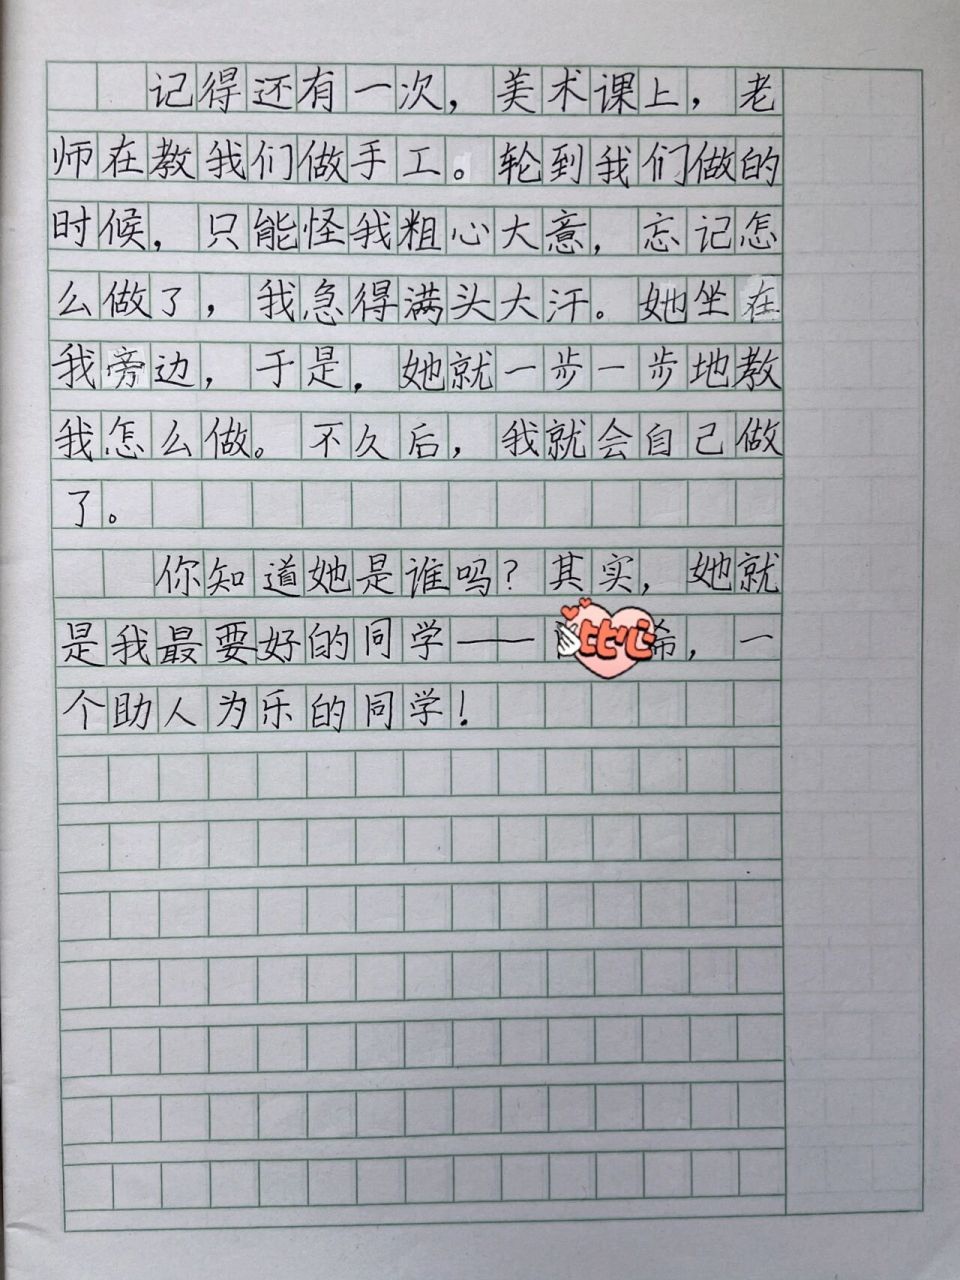 记得还有一次，美术课上，老
师在教我们做手工。轮到我们做的
时候，只能怪我粗心大意，忘记怎
么做了，我急得满头大汗。她坐在
我旁边，于是，她就一步一步地教
我怎么做。不久后，我就会自己做
了。
你知道她是谁吗？其实，她就
是我最要好的同学——比心，一
个助人为乐的同学！